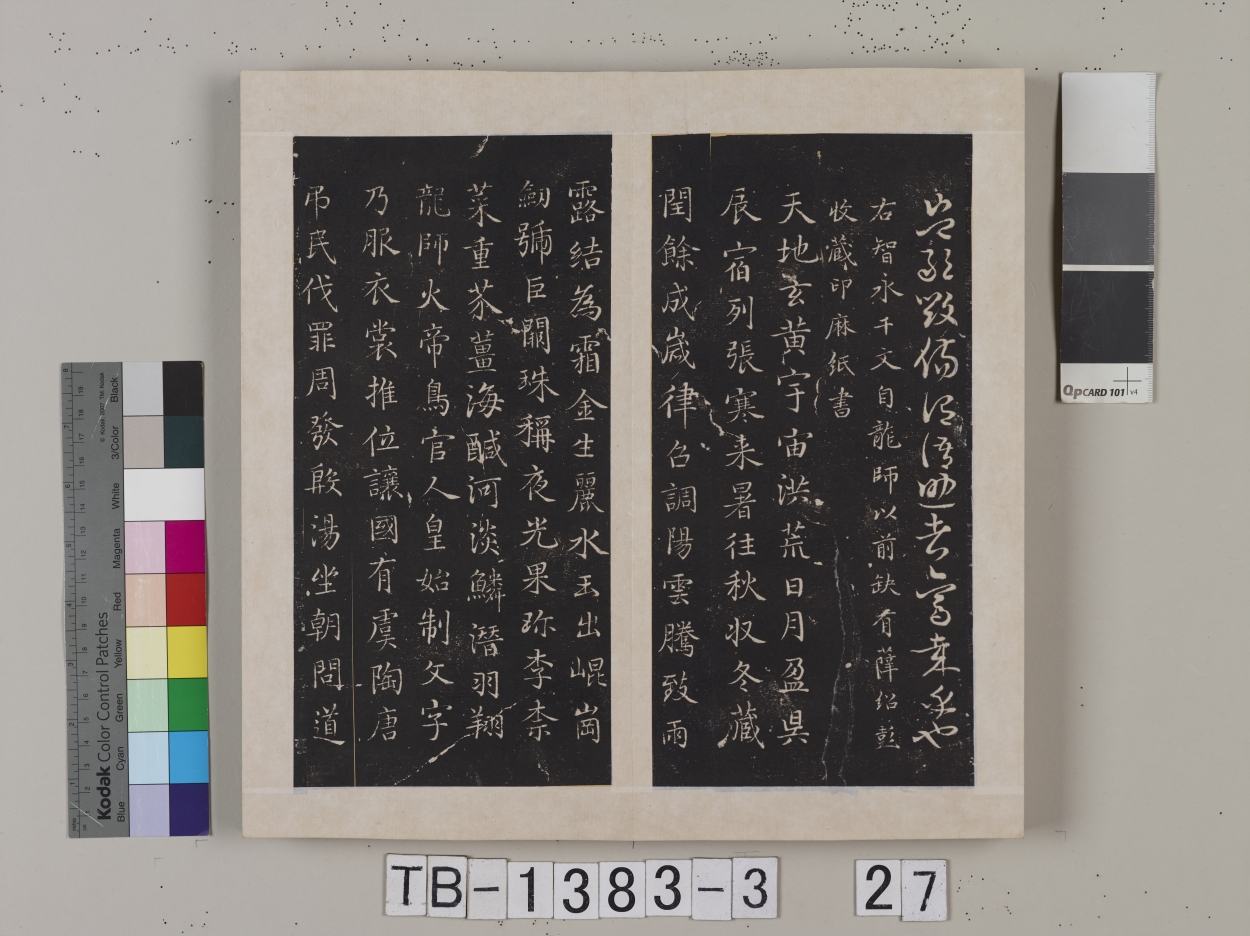 豈敢毀傷謂語助者焉哉乎也
右智永千文自龍師以前缺有薛紹彭
收藏印麻紙書
天地玄黃宇宙洪荒日月盈昃
辰宿列張寒来暑往秋収冬藏
閏餘成歲律召調陽雲騰致雨
露結為霜金生麗水玉出崐崗
劒號巨闕珠稱夜光果珎李柰
菜重芥薑海醎河淡鱗潛羽翔
龍師火帝鳥官人皇始制文字
乃服衣裳推位讓國有虞陶唐
弔民伐罪周發殷湯坐朝問道
QPCARD 101 v4
Kodak Color Control Patches
Blue Cyan Green Yellow Red Magenta White 3/Color Black
TB-1383-3 27